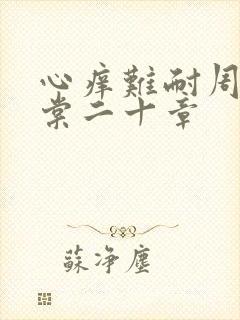 心痒難耐周
棠二十章
蘇净塵